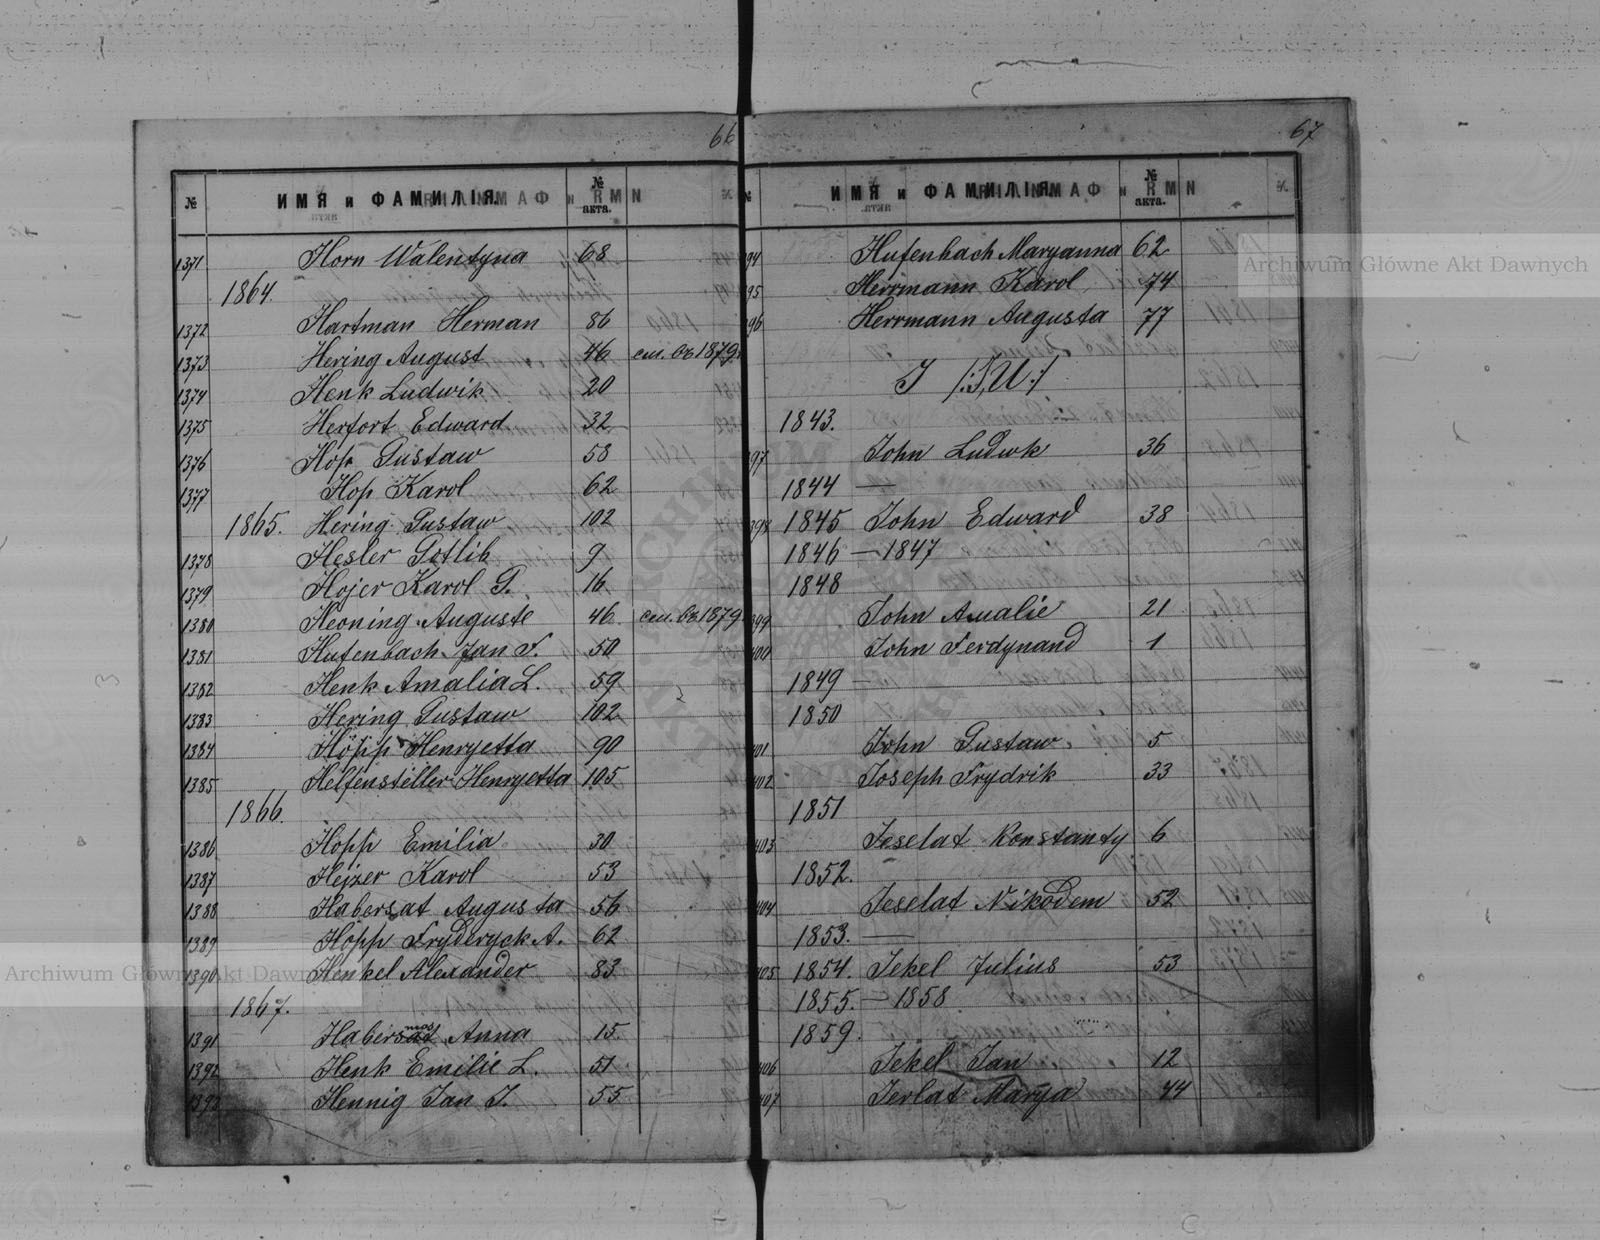 66
№ ИМЯ и ФАМИЛІЯ. № акта.
1371 Horn Walentyna 68
1864.
1372 Hartman Herman 86
1373 Hering August 46 см. въ 1879
1374 Henk Ludwik 20
1375 Herfort Edward 32
1376 Hop Gustaw 58
1377 Hop Karol 62
1865. Hering Gustaw 102
1378 Hesler Gotlib 9
1379 Hojer Karol G. 16
1380 Heoning Auguste 46 см. въ 1879
1381 Hufenbach Jan F. 50
1382 Henk Amalia L. 59
1383 Hering Gustaw 102
1384 Höpp Henryetta 90
1385 Helfensteller Henryetta 105
1866.
1386 Hopp Emilia 30
1387 Hejzer Karol 53
1388 Habersat Augusta 56
1389 Hopp Fryderyck A. 62
1390 Henkel Alexander 83
1867.
1391 Habersat Anna 15
1392 Henk Emilie L. 51
1393 Hennig Jan J. 55
67
№ ИМЯ и ФАМИЛІЯ № акта.
94 Hufenbach Maryanna 62
95 Herrmann Karol 74
96 Herrmann Augusta 77
1843.
97 John Ludwk 36
1844 —
398 1845 John Edward 38
1846 — 1847
1848
399 John Amalie 21
400 John Ferdynand 1
1849 —
1850
401 John Gustaw 5
402 Joseph Frydrik 33
1851
403 Jeselat Konstanty 6
1852.
404 Jeselat Nikodem 52
1853. —
405 1854. Jekel Julius 53
1855. — 1858
1859.
406 Jekel Jan 12
407 Jerlat Marya 44
Archiwum Główne Akt Dawnych
Archiwum Główne Akt Dawnych